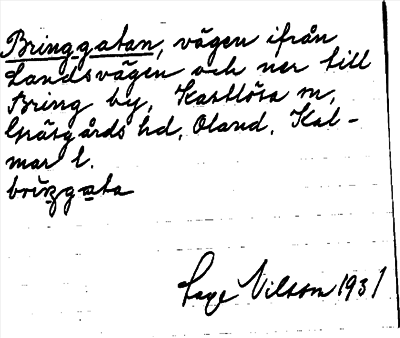 Bringgatan, vägen ifrån
Landsvägen och ner till
Bring by, Kastlösa m,
Gräsgårds hd, Öland, Kal-
mar l.
briŋgata
Lage Nilsson 1931